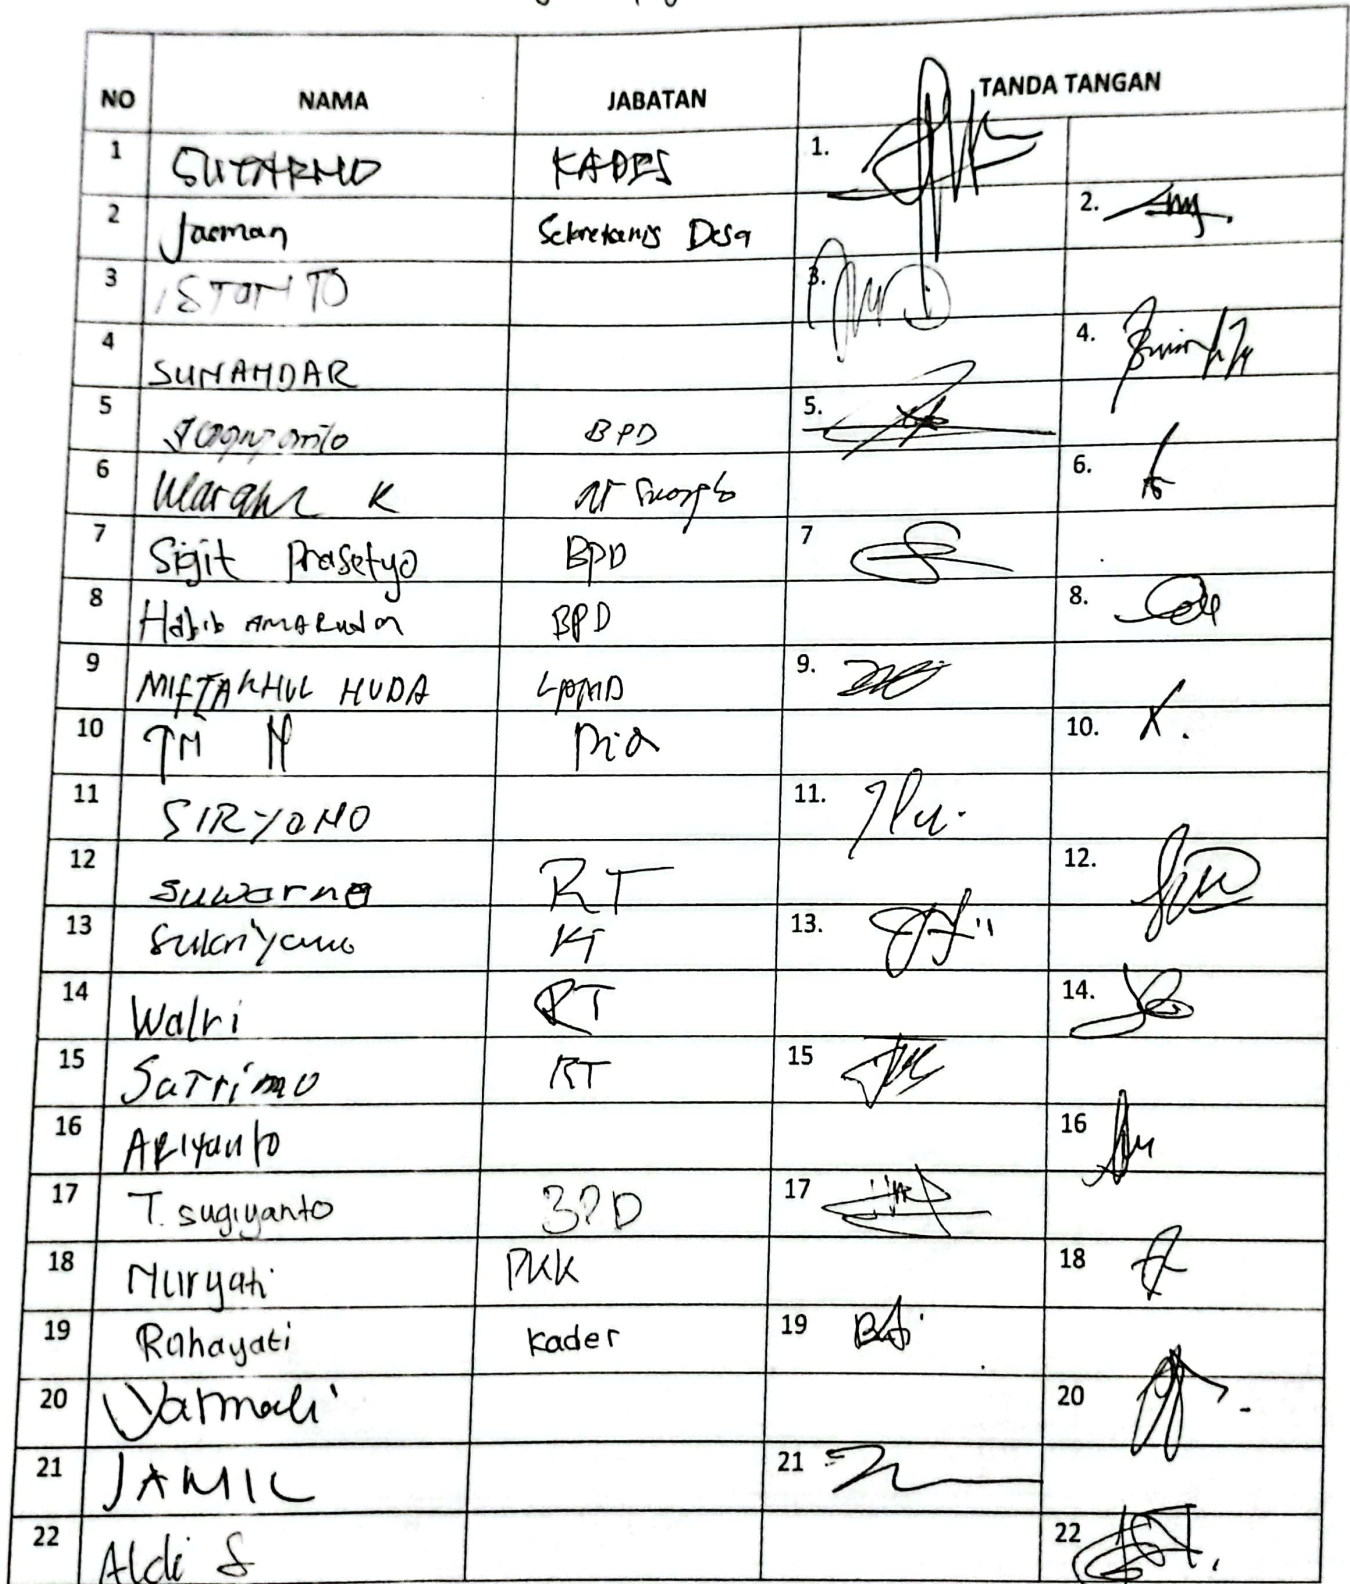 NO NAMA JABATAN TANDA TANGAN
1 SUTARMO KADES 1.
2 Jasman Sekretaris Desa 2.
3 ISTANTO 3.
4 SUNANDAR 4.
5 BPD 5.
6 K 6.
7 Sigit Prasetyo BPD 7
8 Habib AMARudin BPD 8.
9 MIFTAKHUL HUDA LPMD 9.
10 10.
11 SIRYONO 11.
12 Suwarno RT 12.
13 Sukriyano RT 13.
14 Walri RT 14.
15 Satrimo RT 15
16 ARIYanto 16
17 T. sugiyanto BPD 17
18 Nuryati PKK 18
19 Rahayati kader 19
20 20
21 JAMIL 21
22 Aldi S 22